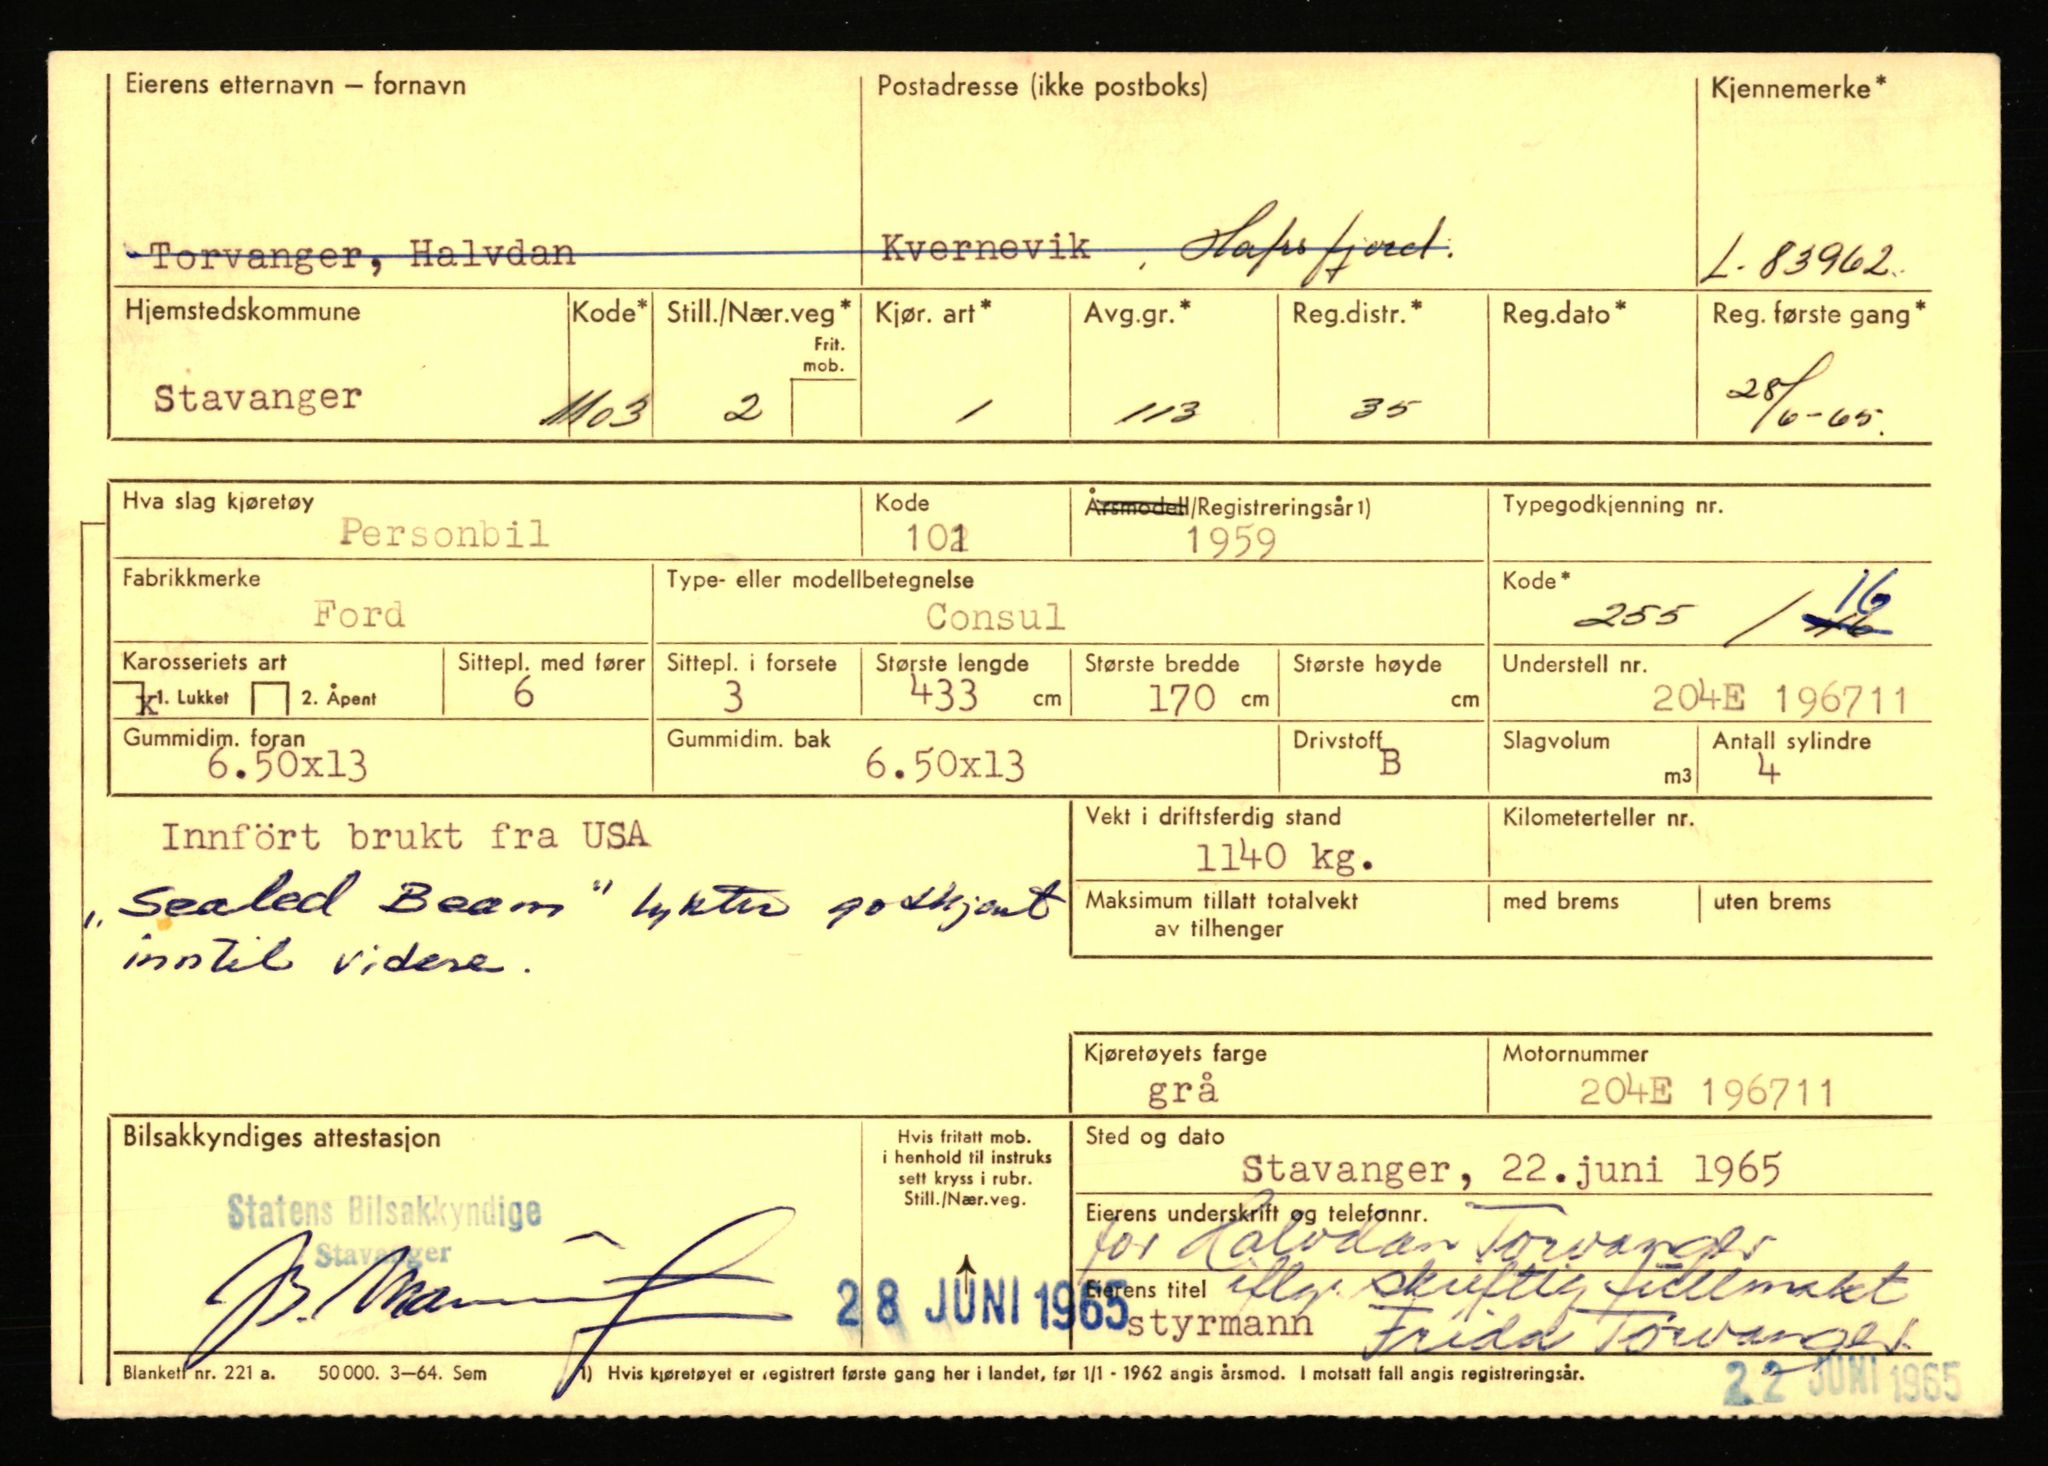 Eierens etternavn – fornavn
Postadresse (ikke postboks)
Kjennemerke*
Torvanger, Halvdan
Kvernevik, Hafrsfjord.
L-83962.
Hjemstedskommune
Kode*
Still./Nær.veg*
Frit.
mob.
Kjør. art*
Avg.gr.*
Reg.distr.*
Reg.dato*
Reg. første gang*
Stavanger
1103
2
1
113
35
28/6-65.
Hva slag kjøretøy
Kode
Årsmodell/Registreringsår1)
Typegodkjenning nr.
Personbil
101
1959
Fabrikkmerke
Type- eller modellbetegnelse
Kode*
Ford
Consul
255 / 16
Karosseriets art
Sittepl. med fører
Sittepl. i forsete
Største lengde
Største bredde
Største høyde
Understell nr.
x 1. Lukket
2. Åpent
6
3
433 cm
170 cm
cm
204E 196711
Gummidim. foran
Gummidim. bak
Drivstoff
Slagvolum
Antall sylindre
6.50x13
6.50x13
B
m3
4
Innfört brukt fra USA
„Sealed Beam" lykter godkjent
inntil videre.
Vekt i driftsferdig stand
Kilometerteller nr.
1140 kg.
Maksimum tillatt totalvekt
av tilhenger
med brems
uten brems
Kjøretøyets farge
Motornummer
grå
204E 196711
Bilsakkyndiges attestasjon
Hvis fritatt mob.
i henhold til instruks
sett kryss i rubr.
Still./Nær.veg.
Sted og dato
Stavanger, 22.juni 1965
Statens Bilsakkyndige
Stavanger
28 JUNI 1965
Eierens underskrift og telefonnr.
for Halvdan Torvanger
Eierens titel
iflg. skriftlig fullmakt
styrmann
Frida Torvanger.
Blankett nr. 221 a. 50000. 3–64. Sem
1) Hvis kjøretøyet er registrert første gang her i landet, før 1/1 - 1962 angis årsmod. I motsatt fall angis registreringsår.
22 JUNI 1965